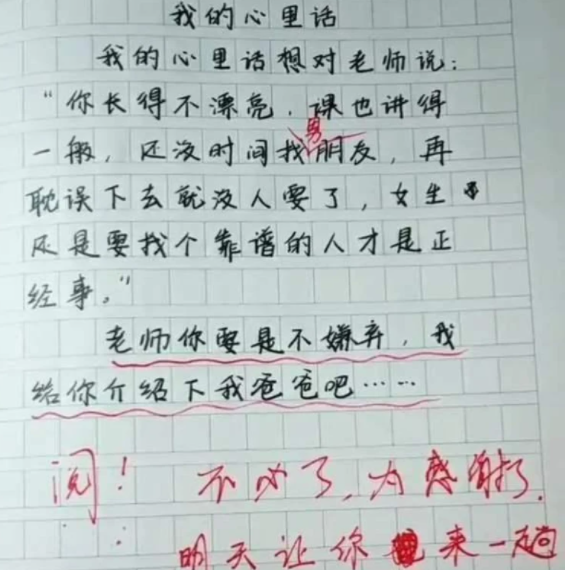 我的心里话
我的心里话想对老师说：
“你长得不漂亮，课也讲得
一般，还没时间找男朋友，再
耽误下去就没人要了，女生
还是要找个靠谱的人才是正
经事。”
老师你要是不嫌弃，我
给你介绍下我爸爸吧……
阅！不必了，
明天让你来一趟